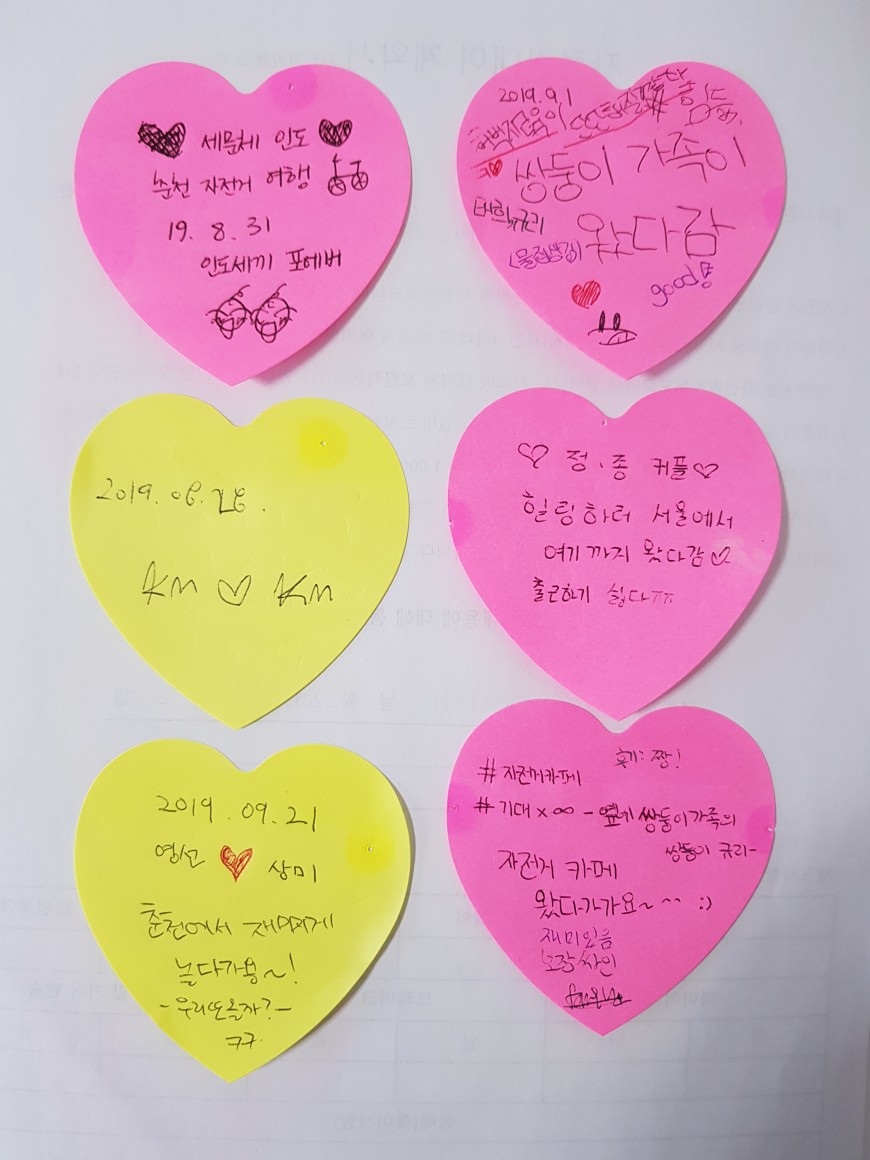 세문체 인도
춘천 자전거 여행
19. 8. 31
인도세끼 포에버
2019. 9. 1
쌍둥이 가족이
왔다감
good
2019. 08. 28.
KM ♡ KM
♡ 정.종 커플♡
힐링하러 서울에서
여기까지 왔다감♡
출근하기 싫다ㅠㅠ
2019. 09. 21
영선 ♥ 상미
춘천에서 재미지게
놀다가용~!
-우리또올까?-
ㅋㅋ
후기: 짱!
#자전거카페
#기대×∞ - 옆에 쌍둥이가족의
쌍둥이 규리-
자전거 카페
왔다가가요~ ^^ :)
재미있음
보장싸인